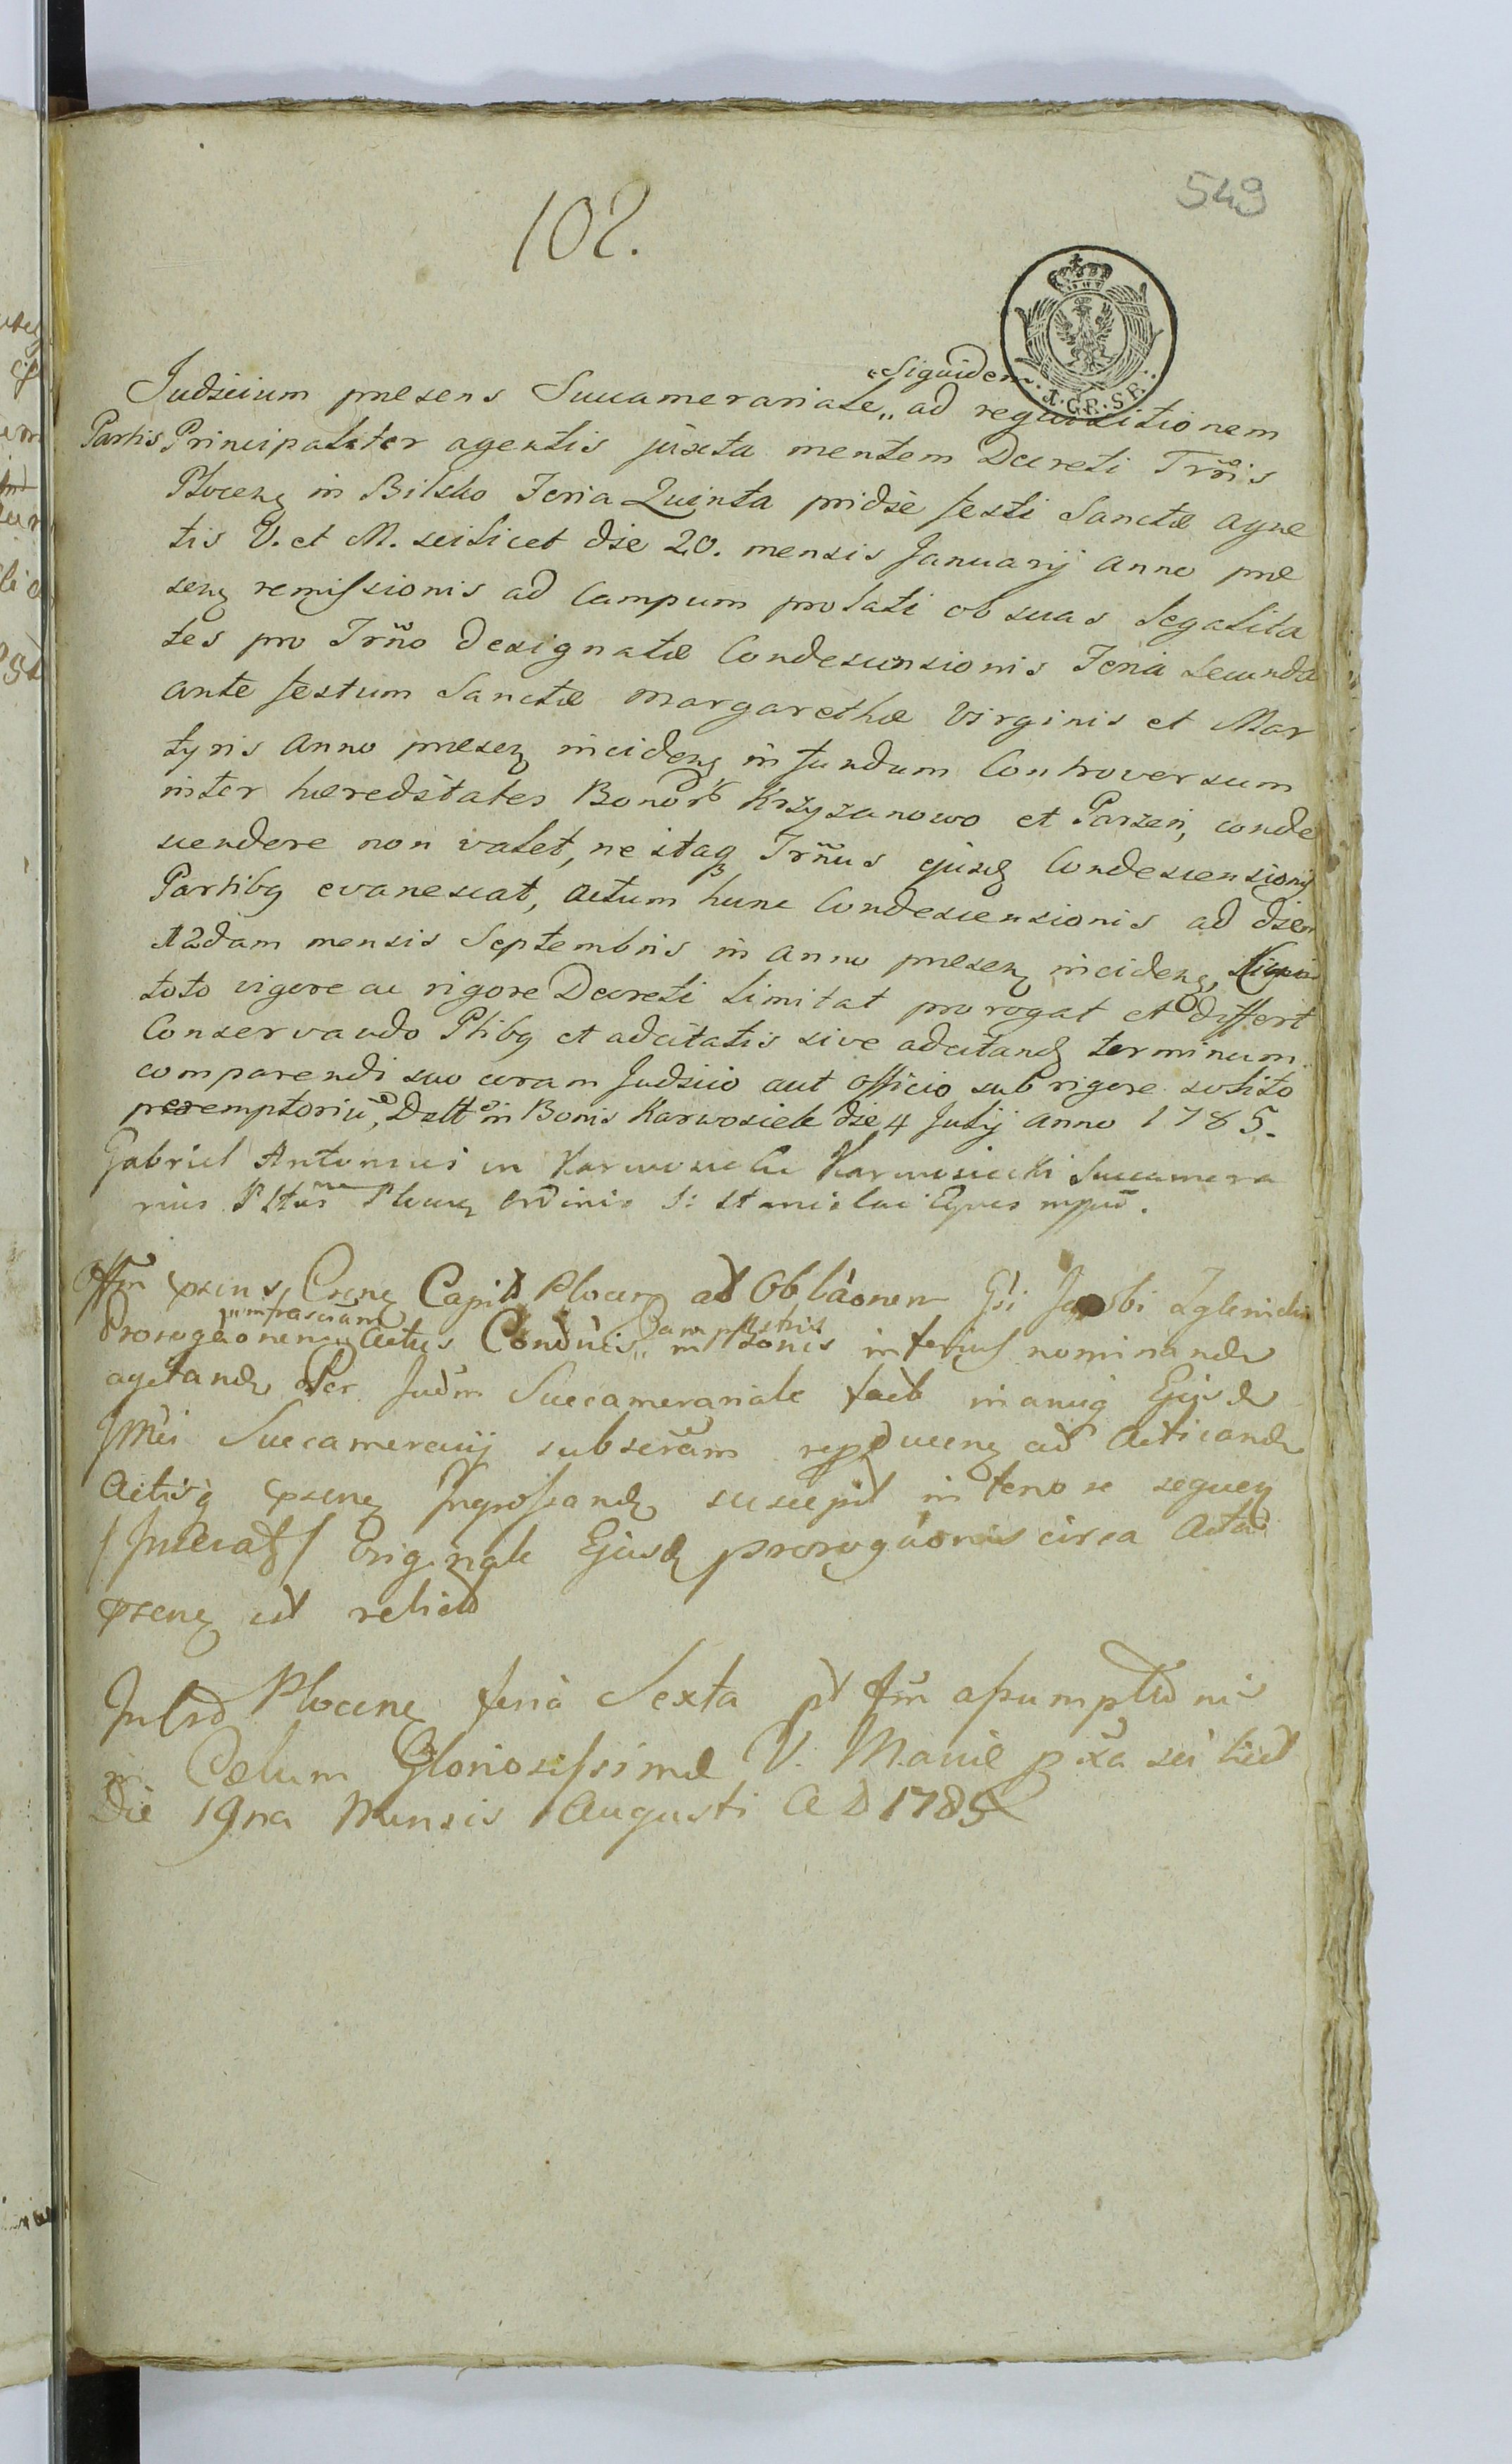 549
102.
I. GR. SR.
Siquidem
Judicium præsens Succamerariale,, ad requisitionem
Partis Principaliter agentis juxta mentem Decreti Trñis
Plocenȝ in Bilsko Feria Quinta pridie festi Sanctæ Agne
tis V. et M. scilicet die 20. mensis Januarij Anno præ
senȝ remissionis ad Campum prolati ob suas legalita
tes pro Trño designatæ Condescensionis Feria secunda
ante festum Sanctæ Margarethæ Virginis et Mar
tyris Anno præsenȝ incidenȝ in fundum Controversum
inter hæreditates Bonor Krzyzanowo et Parzeń, conde
scendere non valet, ne itaqȝ Trñus ejusdȝ Condescensionis
Partibȝ evanescat, actum hunc Condescensionis ad diem
12dam mensis Septembris in Anno præsenȝ incidenȝ,
toto vigore ac rigore Decreti limitat prorogat et differt
Conservando Ptibȝ et adcitatis sive adcitandȝ terminum
comparendi suo coram Judicio aut Officio sub rigore solito
peremptoriũ, Datt in Bonis Karwosieki die 4 Julij Anno 1785.
Gabriel Antonius in Karwosieki Karwosiecki Succamera
rius Pltus Plocenȝ Ordinis S: Stanislai Eques mppıã.
Offm præns Csene Capit Plocenȝ ad Oblãonem Gsi Jacobi Zglenicki
pnmfrascriam
Prorogãonem,, Actus inferius nominandȝ
agitandȝ Per Judm Succamerariale factȝ manuqȝ Ejusdȝ
Jmei Succamerarij subscriam reproducenȝ ad Acticandȝ
Actisqȝ præsenȝ Ingrossandȝ suscepit in tenore sequenȝ
/Inserat/ Originale Ejusdȝ prorogãonis circa Acta
præsenȝ est relictȝ
Plocene feria Sexta pt fm assumptionis
in Cælum Gloriosissimæ V. Mariæ pxa scilicet
Die 19na Mensis Augusti A D 1785